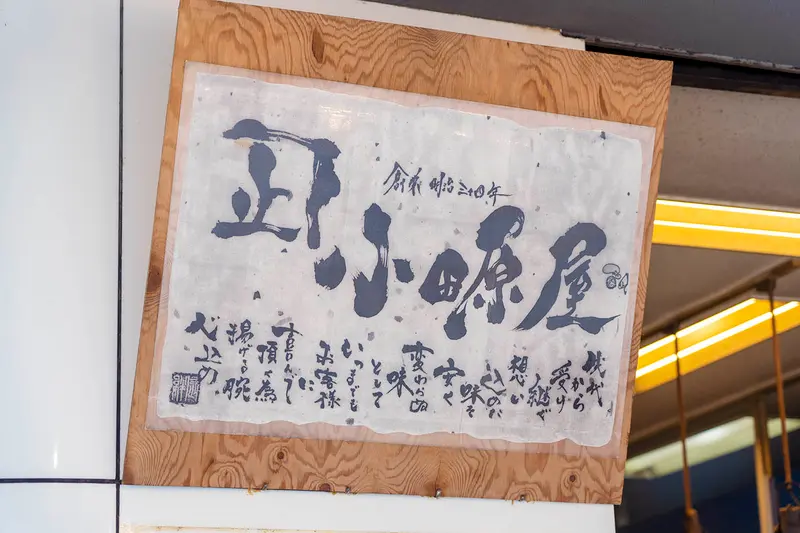 凪
創業 明治三十四年
小田原屋
から
受け
継ぐ
想い
味を
安く
変わらぬ
味
として
いつまでも
お客様
に
喜んで
頂く為
揚げる腕
心込め